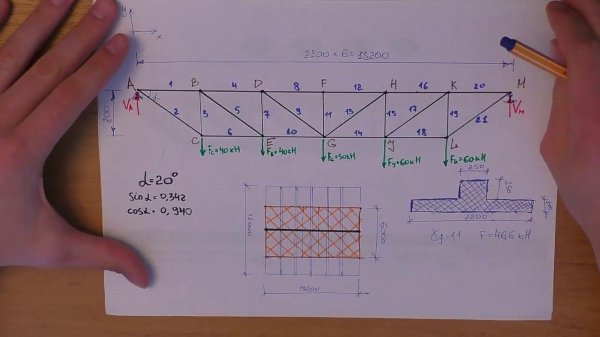 y
x
2200 × 6 = 13200
A 1 B 4 D 8 F 12 H 16 K 20 M
V_A
α
2 3 5 7 9 11 13 15 17 19 21
V_M
C 6 E 10 G 14 J 18 L
F_C=40кН
F_E=40кН
F_G=50кН
F_J=60кН
F_L=60кН
α=20°
sinα=0,342
cosα=0,940
12000
6000
13200
250
2200
γf=1,1 F=46,6 кН